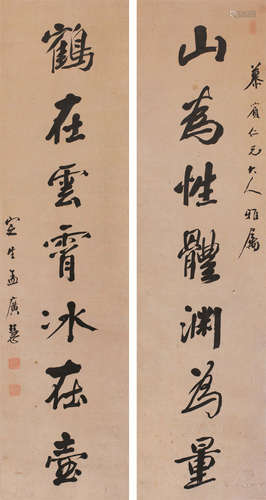 慕賓仁兄大人雅屬
山為性體淵為量
鶴在雲霄冰在壺
孟廣慧